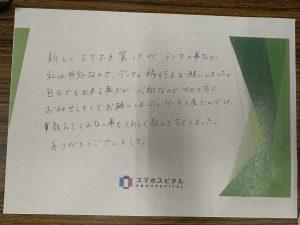 新しいスマホを買ったが データの事など
私は無知なので、データの移行をお願いしました。
自分でも出来る気だが 心配なのでプロの方に
お任せしたくてお願いしました。ケータイ屋さんでは
教えてくれない事もくわしく教えて下さりました。
ありがとうございました。
スマホスピタル
SMAHOSPITAL